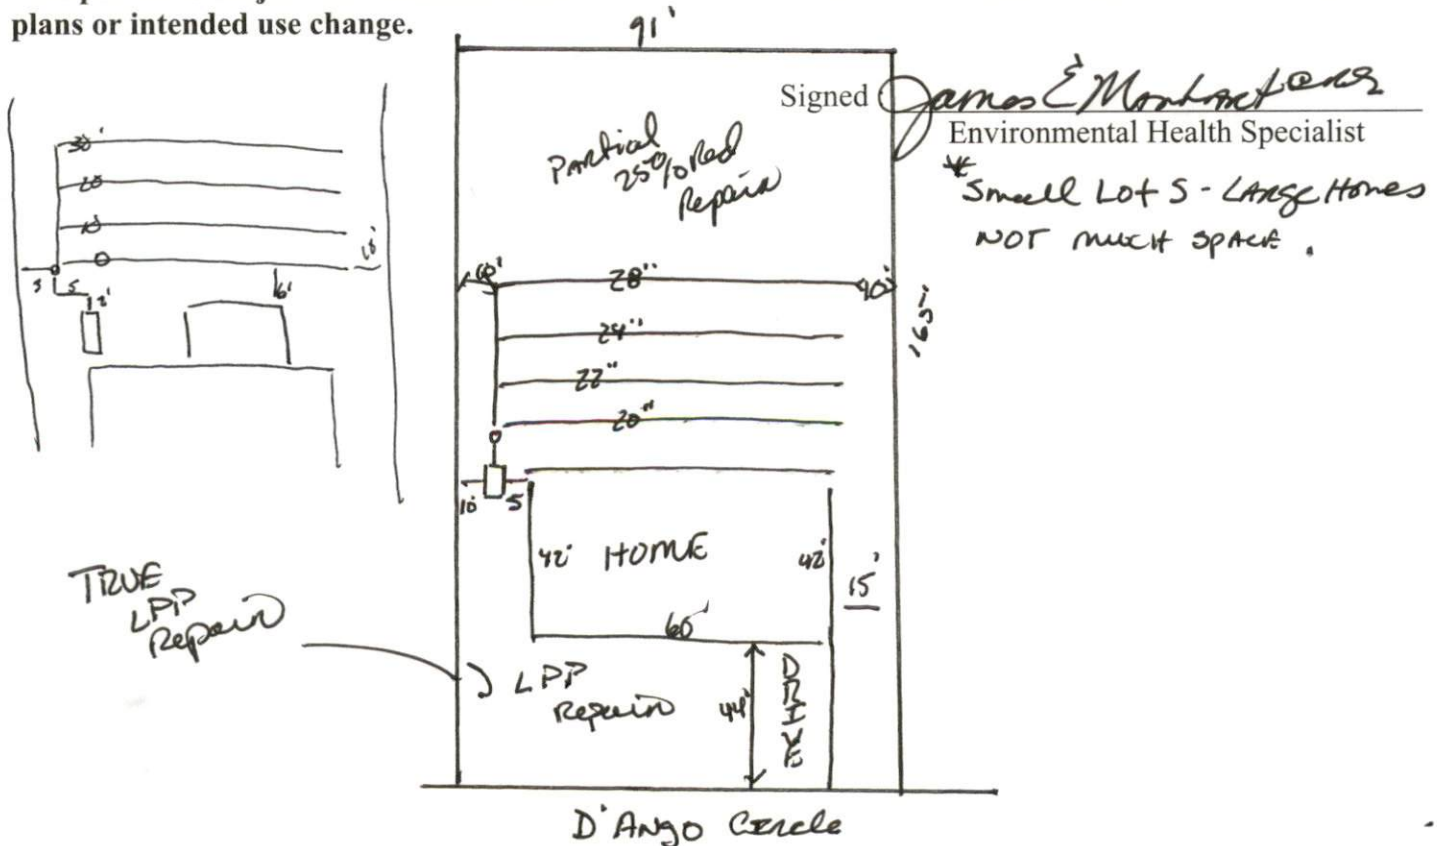 plans or intended use change.
91'
Signed James E
Environmental Health Specialist
* Small Lots - Large Homes
NOT much space.
Partial
25% Red
Repair
30'
20
10
0
3
5
12'
6'
10'
28"
24"
22"
20"
165'
10'
5
42'
HOME
42'
15'
60'
TRUE
LPP
Repair
LPP
Repair
44'
DRIVE
D'Ango Circle